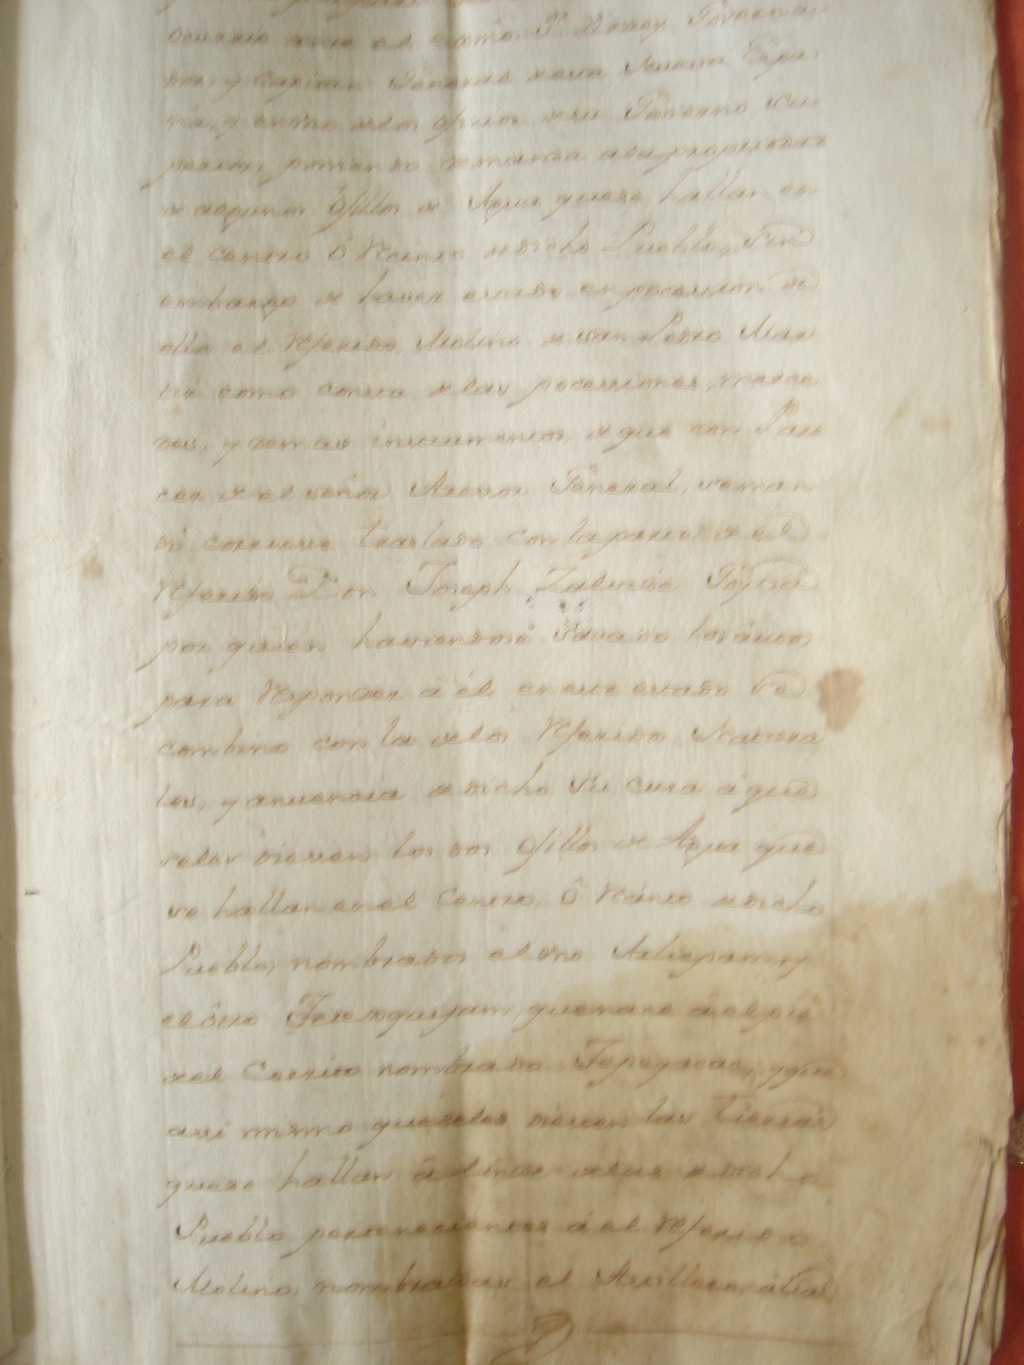 ocurrio ante el Exmo. Sr. Virrey Governa
dor, y Capitan General de esta Nueva Espa
ña, y en uno de los oficios de su Govierno Su
perior, poniendo demanda a la propriedad
de algunos Ojillos de Agua que se hallan en
el centro ô Recinto de dicho Pueblo, sin
embargo de haver estado en pocession de
ella el Referido Molino de San Pedro Mar
tir como consta de las pocessiones, merce
des, y demas instrumentos, de que con Pare
cer de el señor Asesor General, se man
dó corriese traslado con la parte de el
Referido Don Joseph Zalinde
por quien haviendose sacado los autos
para Responder á él en este estado se
combino con la de los Referidos Natura
les, y anuencia de dicho su cura á que
se les diesen los dos Ojillos de Agua que
se hallan en el Centro, ô Recinto de dicho
Pueblo, nombrados el uno
el ôtro que nace á el pie
de el Cerrito nombrado Tepeyacac, y que
assi mismo que se les diesen las Tierras
que se hallan â linde de dicho
Pueblo pertenecientes á el Referido
Molino nombradas el